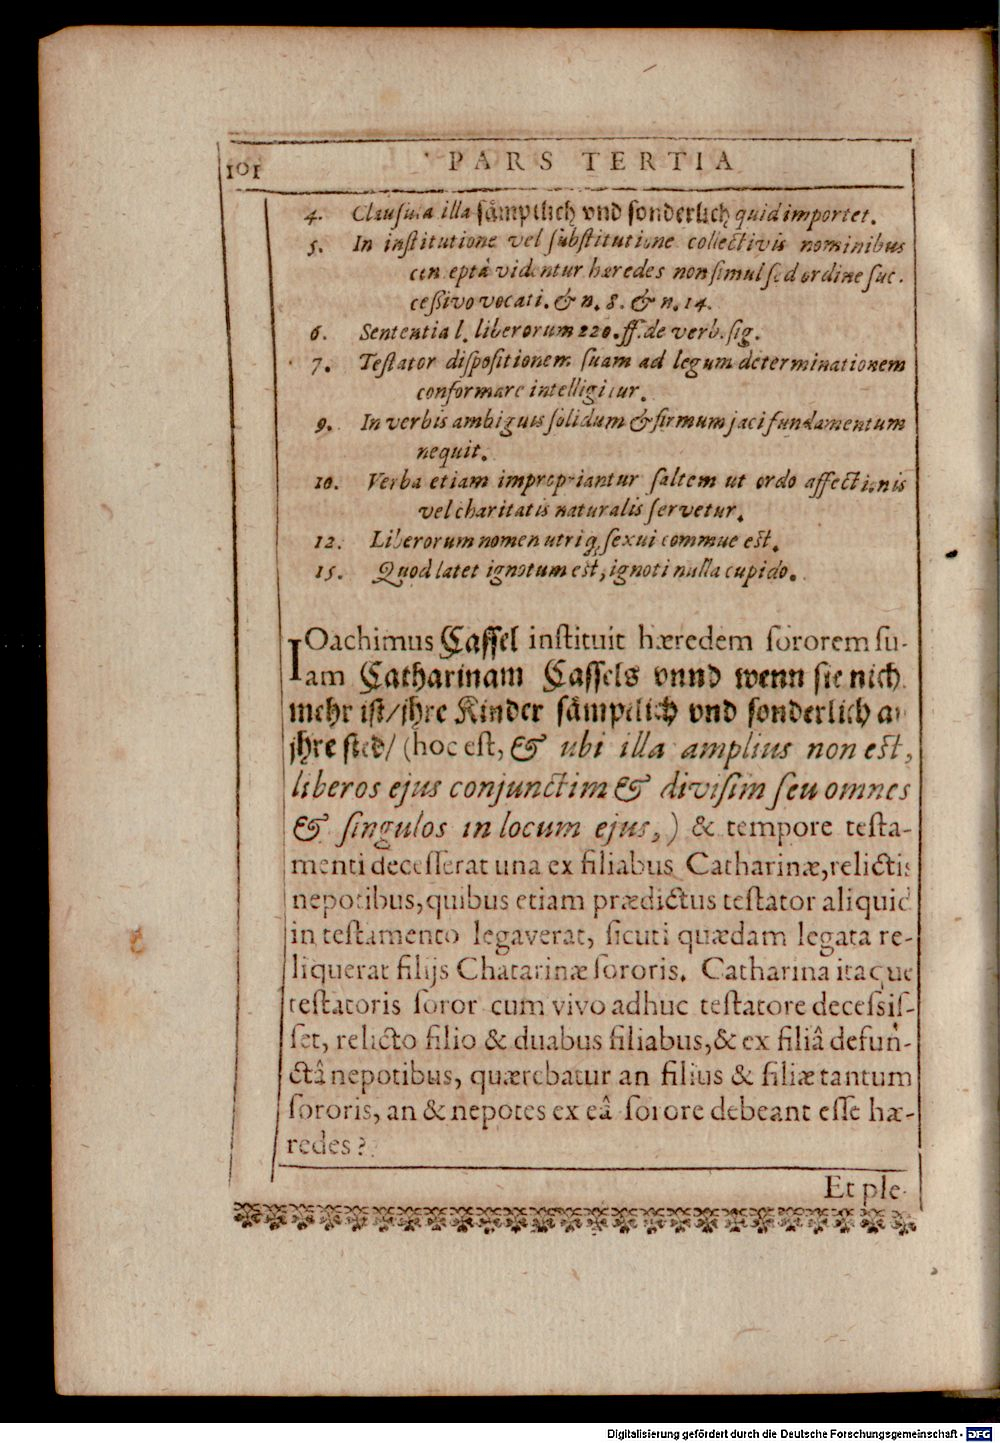 101 PARS TERTIA
4. Clausula illa sämptlich vnd sonderlich quid importet.
5. In institutione vel substitutione collectivis nominibus
conceptâ videntur hæredes non simul sed ordine suc-
cessivo vocati. & n. 8. & n. 14.
6. Sententia l. liberorum 220. ff. de verb. sig.
7. Testator dispositionem suam ad legum determinationem
conformare intelligitur.
9. In verbis ambiguis solidum & firmum jaci fundamentum
nequit.
10. Verba etiam impropriantur saltem ut ordo affectionis
vel charitatis naturalis servetur.
12. Liberorum nomen utriq; sexui commue est.
15. Quod latet ignotum est, ignoti nulla cupido.
IOachimus Cassel instituit hæredem sororem su-
am Catharinam Cassels vnnd wenn sie nich
mehr ist/jhre Kinder sämptlich vnd sonderlich an
jhre sted/ (hoc est, & ubi illa amplius non est,
liberos ejus conjunctim & divisim seu omnes
& singulos in locum ejus,) & tempore testa-
menti decesserat una ex filiabus Catharinæ, relictis
nepotibus, quibus etiam prædictus testator aliquid
in testamento legaverat, sicuti quædam legata re-
liquerat filijs Chatarinæ sororis. Catharina itaque
testatoris soror cum vivo adhuc testatore decessis-
set, relicto filio & duabus filiabus, & ex filiâ defun-
ctâ nepotibus, quærebatur an filius & filiæ tantum
sororis, an & nepotes ex eâ sorore debeant esse hæ-
redes?
Et ple-
Digitalisierung gefördert durch die Deutsche Forschungsgemeinschaft - DFG